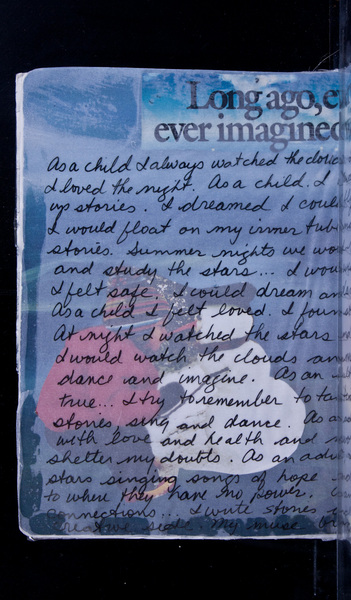 Long ago, e
ever imagined
As a child I always watched the clouds
I loved the night. As a child. I
up stories. I dreamed I could
I would float on my inner tube
stories. Summer nights we wou
and study the stars... I wou
I felt safe. I could dream an
As a child I felt loved. I foun
At night I watched the stars
I would watch the clouds an
dance and imagine. As an
true... I try to remember to ta
stories, sing and dance. As a
with love and health and
shelter my doubts. As an adu
stars singing songs of hope
to where they have no power.
connections... I write stories
creative My muse